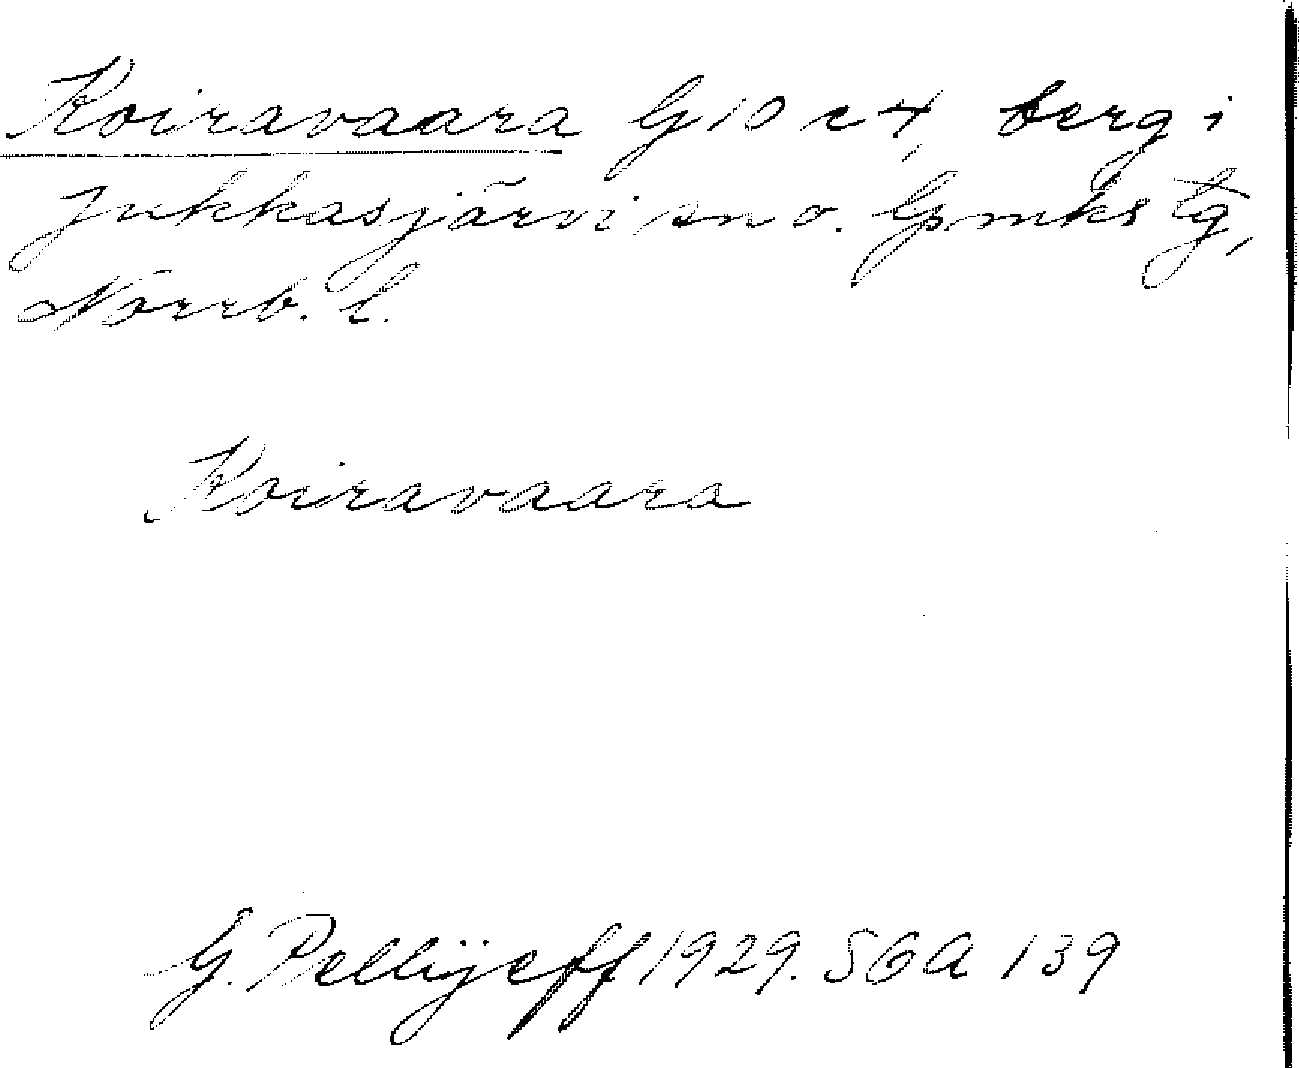 Koiravaara G 10 c 4, berg i
Jukkasjärvi sn o. lpmks tg,
Norrb. l.
Koiravaara
G. Pellijeff 1929. SGA 139